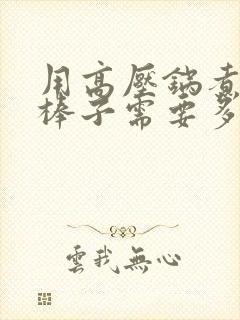 用高壓鍋煮
棒子需要多
雲我無心